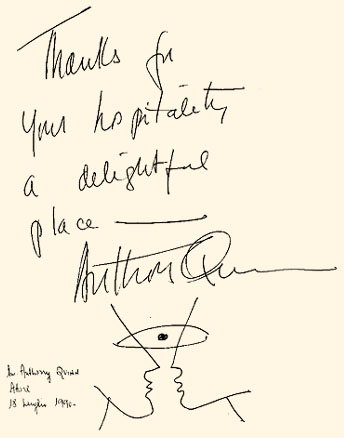 Thanks for
your hospitality
a delightful
place —
Anthony Quinn
Anthony QUINN
18 luglio 1990-